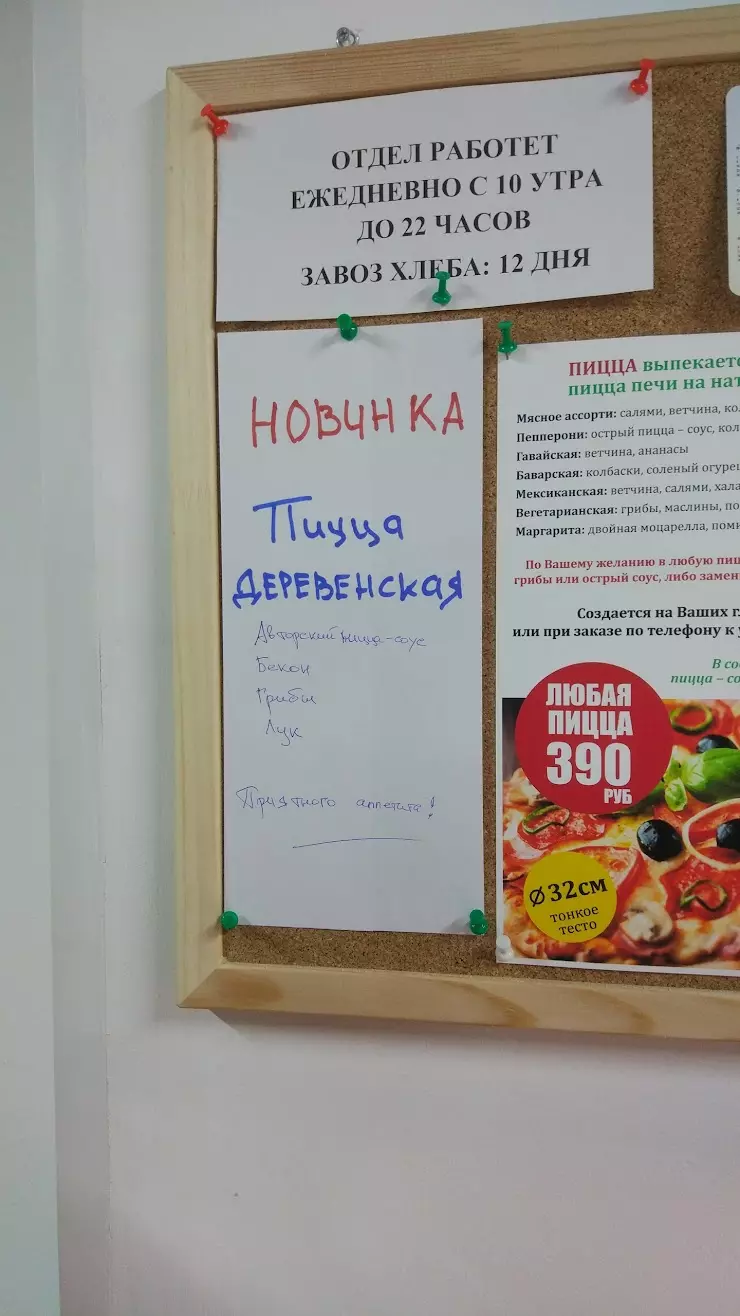 ОТДЕЛ РАБОТЕТ
ЕЖЕДНЕВНО С 10 УТРА
ДО 22 ЧАСОВ
ЗАВОЗ ХЛЕБА: 12 ДНЯ
НОВИНКА
Пицца
ДЕРЕВЕНСКАЯ
Авторский пицца-соус
Бекон
Грибы
Лук
Приятного аппетита!
ПИЦЦА выпекаетс
пицца печи на нат
Мясное ассорти: салями, ветчина, ко
Пепперони: острый пицца – соус, кол
Гавайская: ветчина, ананасы
Баварская: колбаски, соленый огурец
Мексиканская: ветчина, салями, хала
Вегетарианская: грибы, маслины, по
Маргарита: двойная моцарелла, поми
По Вашему желанию в любую пиц
грибы или острый соус, либо замен
Создается на Ваших г
или при заказе по телефону к
В со
пицца – со
ЛЮБАЯ
ПИЦЦА
390
РУБ
Ø32см
тонкое
тесто